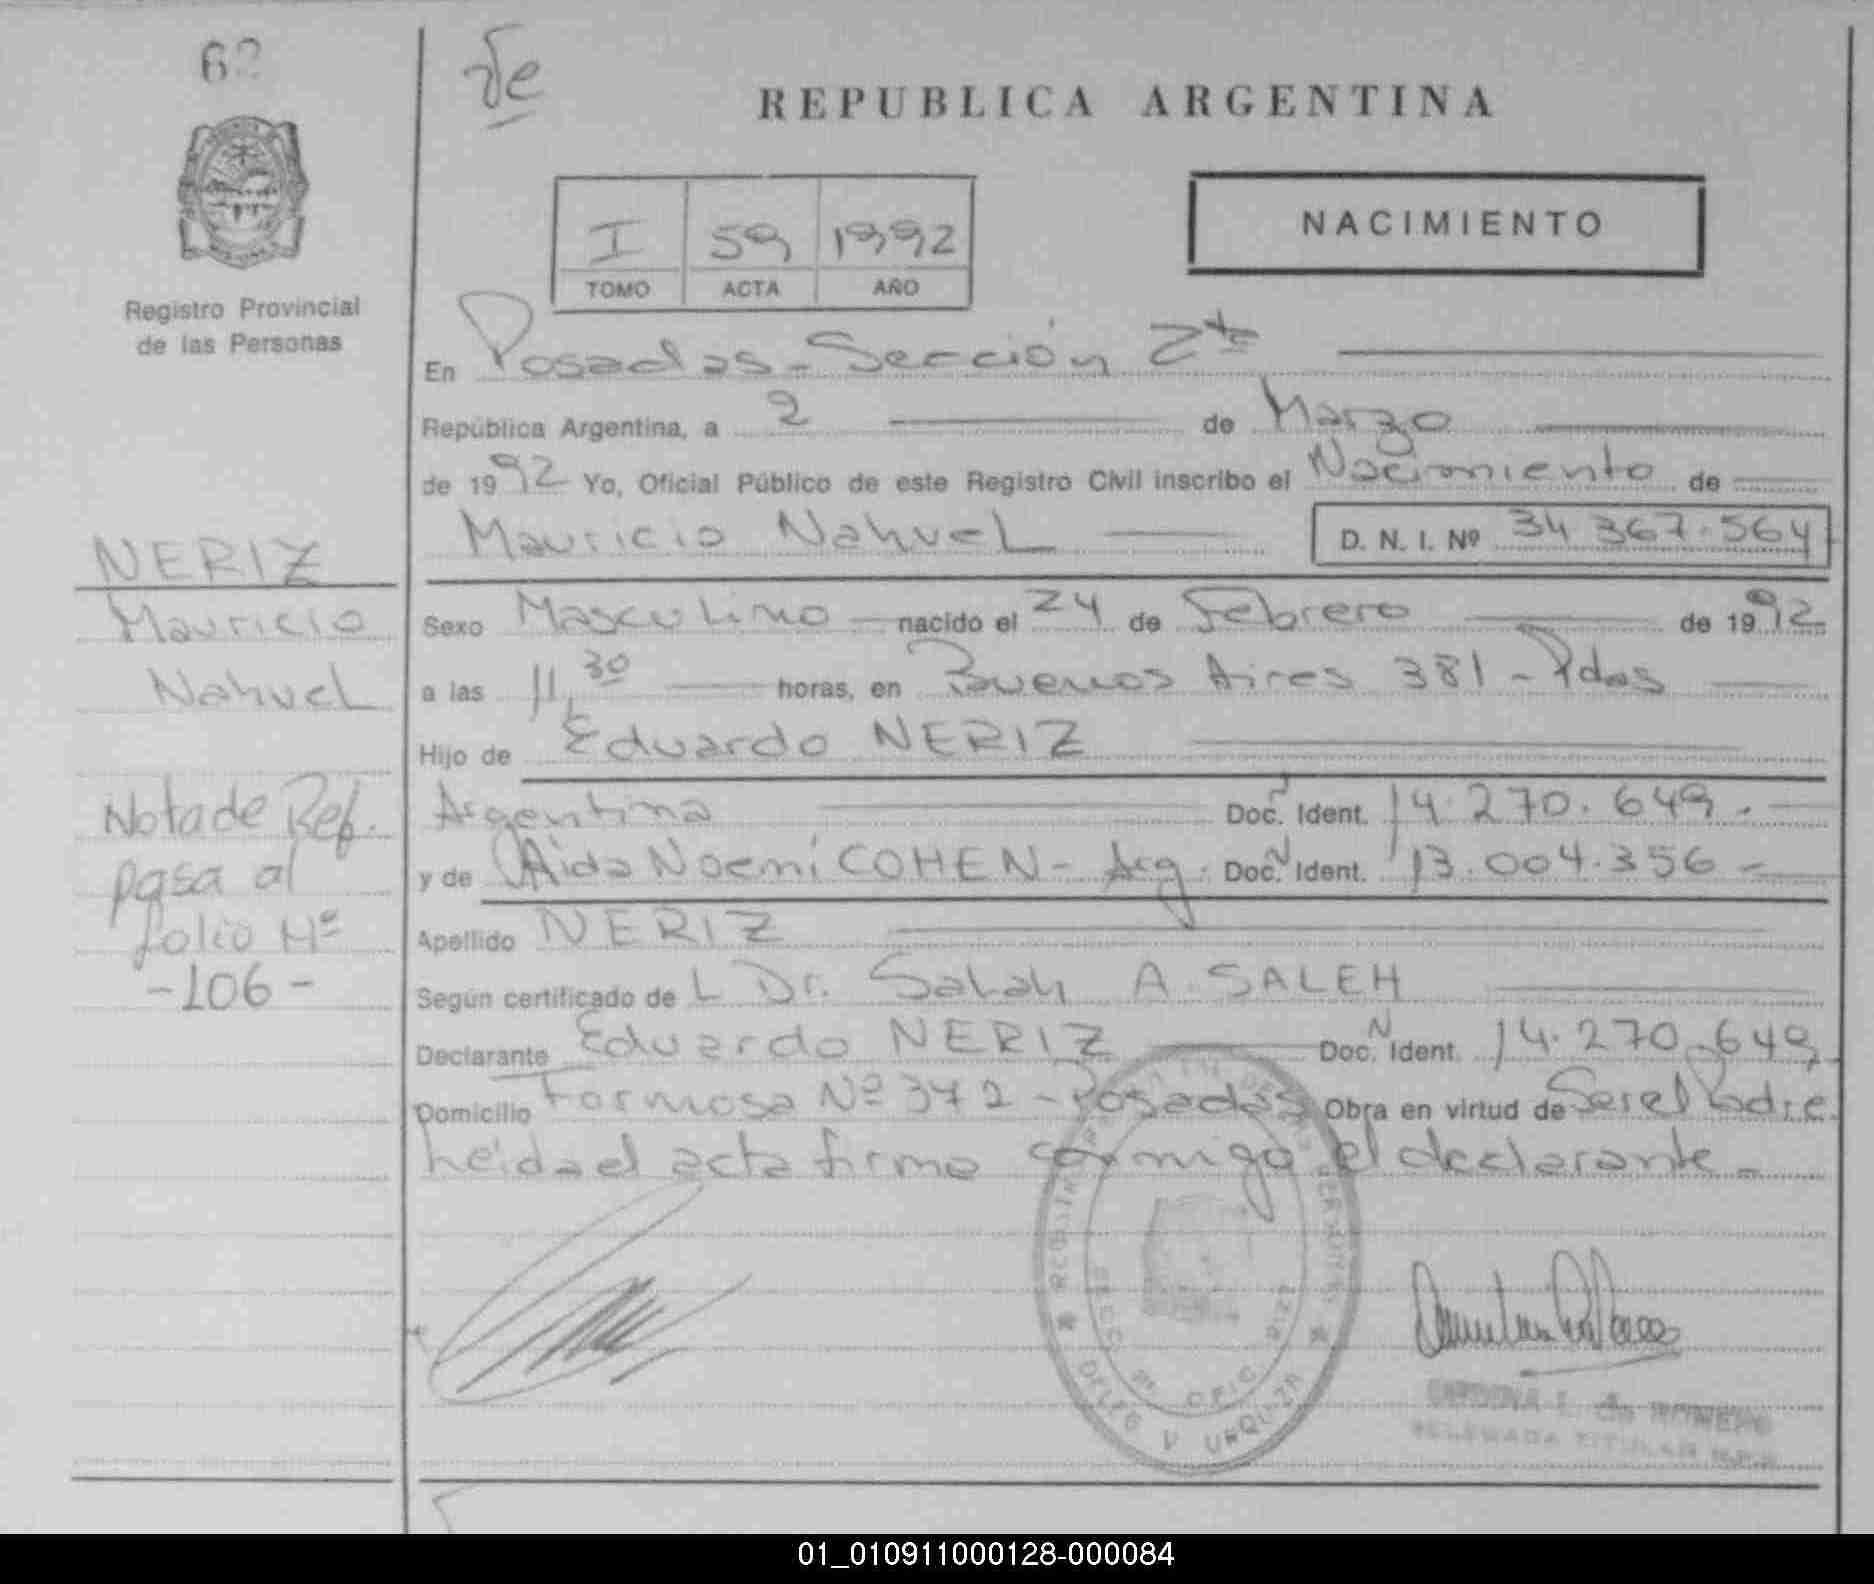 62
REPUBLICA ARGENTINA
NACIMIENTO
I 59 1992
TOMO ACTA AÑO
Registro Provincial
de las Personas
En Posadas - Sección 2da
República Argentina, a 2 de Marzo
de 1992 Yo, Oficial Público de este Registro Civil inscribo el Nacimiento de
Mauricio Nahuel D. N. I. Nº 34.367.564
NERIZ
Mauricio
Nahuel
Sexo Masculino nacido el 24 de Febrero de 1992
a las 11,30 horas, en Buenos Aires 381 - Pdas
Hijo de Eduardo NERIZ
Argentina Doc. N Ident. 14.270.649.-
y de Aida Noemí COHEN - Arg. Doc. N Ident. 13.004.356 -
Nota de Ref.
pasa al
folio Nº
-106-
Apellido NERIZ
Según certificado de L Dr. Salah A. SALEH
Declarante Eduardo NERIZ Doc. N Ident. 14.270.649
Domicilio Formosa Nº 372 - Posadas Obra en virtud de Ser el Padre.
Leída el acta firma conmigo el declarante -
DELEGADA TITULAR
01_010911000128-000084